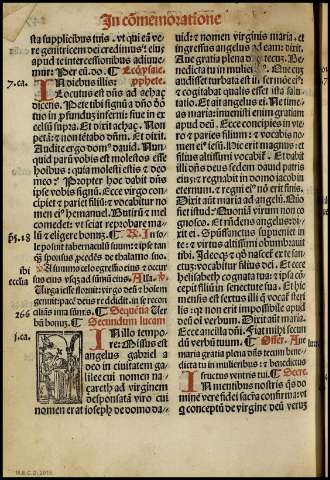 In cōmemoratione
sta supplicibus tuis. vt qui eā ve
re genitricem dei credimus: eius
apud te intercessionibus adiuue
mur: Per eū. dō. Lectio Esaye
pphete.
7. ca.
In diebus illis:
Locutus est dn̄s ad achaz
dicens. Pete tibi signū a dn̄o deo
tuo in profundū inferni: siue in ex
celsū supra. Et dixit achaz. Non
petā: ⁊ nō tētabo dn̄m. Et dixit.
Audite ergo domꝰ dauid. Nun
quid parū vobis est molestos esse
hoībus: quia molesti estis ⁊ deo
meo? Propter hoc dabit dn̄s
ipse vobis signū. Ecce virgo con
cipiet ⁊ pariet filiū: ⁊ vocabitur no
men eiꝰ hemanuel. Butirū ⁊ mel
comedet: vt sciat reprobare ma
lū ⁊ eligere bonū. In so
ps. 18
le posuit tabernaculū suum: ⁊ ipse tan
q̄ sponsus pcedēs de thalamo suo.
ibi
A summo celo egressio eius: ⁊ occur
sus eius vsq̄ ad summū eius. Alla.
ecclesia
Virga iesse floruit: virgo deū ⁊ hoīem
genuit: pacē deus reddidit: in se recon
cilians ima summis. Sequētia
266
bn̄ bonuz.
Secundum lucam
1. ca.
In illo tempo
re: Missus est
angelus gabriel a
deo in ciuitatem ga
lilee cui nomen na
zareth ad virginem
desponsatā viro cui
nomen erat ioseph de domo da-
uid: ⁊ nomen virginis maria. et
ingressus angelus ad eam: dixit.
Aue gratia plena dn̄s tecuz. Be
nedicta tu in mulieribꝰ. Que cuz
audisset turbata est ī sermōe eiꝰ:
⁊ cogitabat qualis esset ista salu
tatio. Et ait angelus ei. Ne time
as maria: inuenisti enim gratiam
apud deū. Ecce concipies in vte
ro ⁊ paries filium: ⁊ vocabis no
men eiꝰ iesū. Hic erit magnus: et
filius altissimi vocabiť. Et dabit
illi dn̄s deus sedem dauid patris
eius: ⁊ regnabit in domo iacob in
eternum. ⁊ regni eiꝰ nō erit finis.
Dixit aūt maria ad angelū. Quō
fiet istud: Quoniā virum non co
gnosco. Et rn̄dens angelus dixit
ei. Spūssanctus supueniet in
te: ⁊ virtus altissimi obumbrabit
tibi. Ideoq̄ ⁊ qd̄ nascet̄ ex te san
ctuz: vocabitur filius dei. Et ecce
helisabeth cognata tua: ⁊ ipsa co
cepit filiū in senectute sua. Et hic
mensis est sextus illi q̄ vocaťʳ steri
lis: qꝛ non erit impossibile apud
deū oē verbum. Dixit aūt maria.
Ecce ancilla dn̄i. Fiat mihi secun
dū verbū tuum. Offer. Aue
maria gratia plena dn̄s tecum bene
dicta tu in mulieribus: ⁊ benedictus
fructus ventris tui. Secre.
In mentibus nostris q̄s do
mine vere fidei sacra confirma: vt
q̄ conceptū de virgine deū veruz
M.B.C.D. 2016